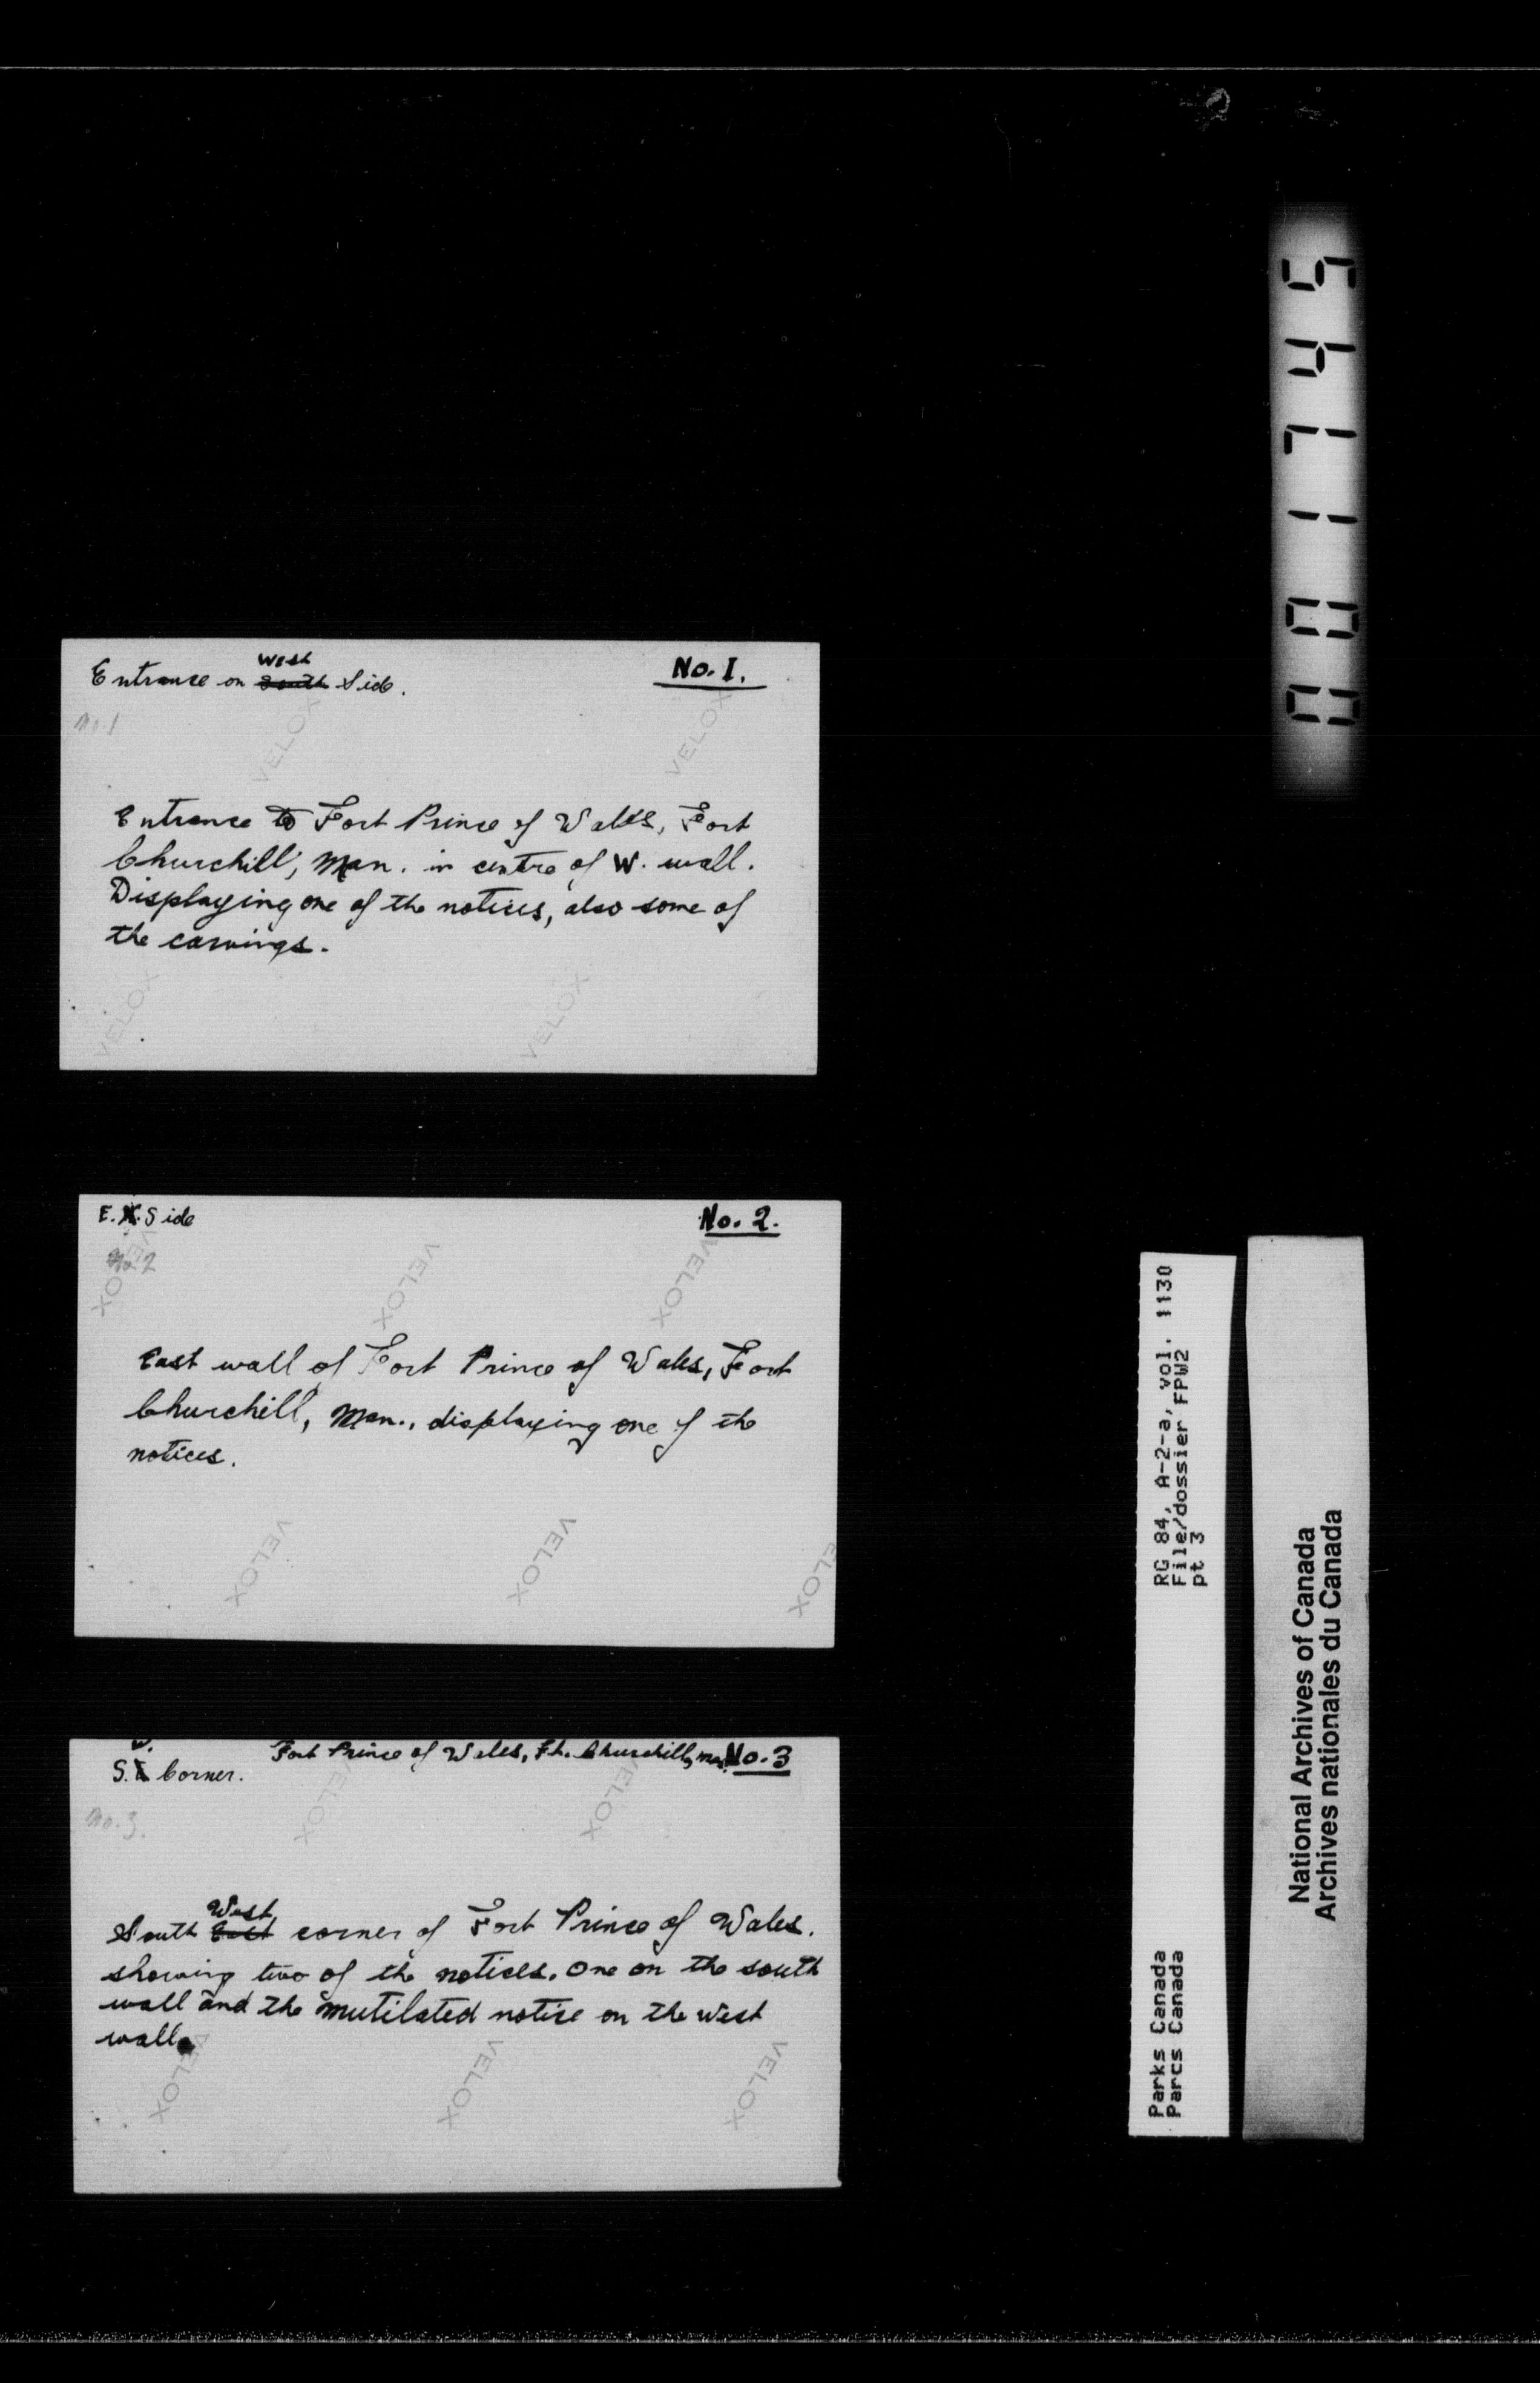 Entrance on West ~~South~~ Side.
No. 1.
No. 1
Entrance to Fort Prince of Wales, Fort
Churchill, Man. in centre of W. wall.
Displaying one of the notices, also some of
the carvings.
VELOX
VELOX
VELOX
VELOX
E. Side
No. 2.
No. 2
East wall of Fort Prince of Wales, Fort
Churchill, Man., displaying one of the
notices.
VELOX
VELOX
VELOX
VELOX
VELOX
VELOX
W.
S. ~~E~~ Corner.
Fort Prince of Wales, Ft. Churchill, Man.
No. 3
No. 3.
South West ~~East~~ corner of Fort Prince of Wales.
showing two of the notices. One on the south
wall and the mutilated notice on the west
wall.
VELOX
VELOX
VELOX
VELOX
VELOX
001745
RG 84, A-2-a, vol. 1130
File/dossier FPW2
pt 3
Parks Canada
Parcs Canada
National Archives of Canada
Archives nationales du Canada